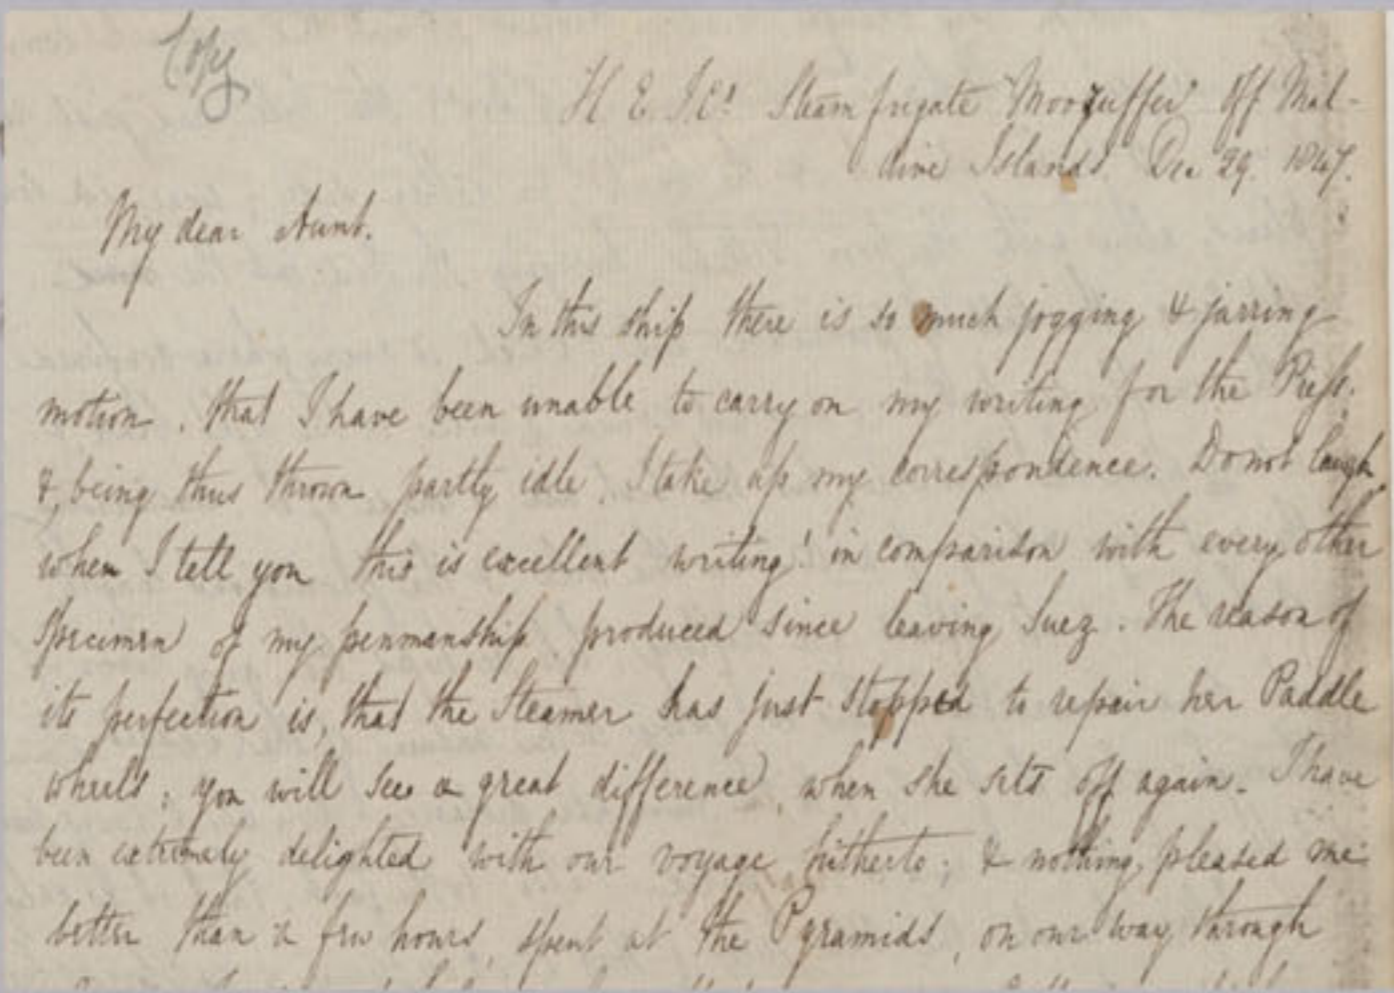 Copy
H. E. I. Cs. Steam frigate "Moozuffer" Off Mal-
dive Islands. Dec 29. 1847.
My dear Aunt.
In this ship there is so much jogging & jarring
motion, that I have been unable to carry on my writing for the Press.
&, being thus thrown partly idle, I take up my correspondence. Do not laugh
when I tell you this is excellent writing! in comparison with every other
specimen of my penmanship produced since leaving Suez. The reason of
its perfection is, that the Steamer has just stopped to repair her Paddle
wheels; you will see a great difference, when she sets off again. I have
been extremely delighted with our voyage hitherto; & nothing pleased me
better than a few hours, spent at the Pyramids, on our way through